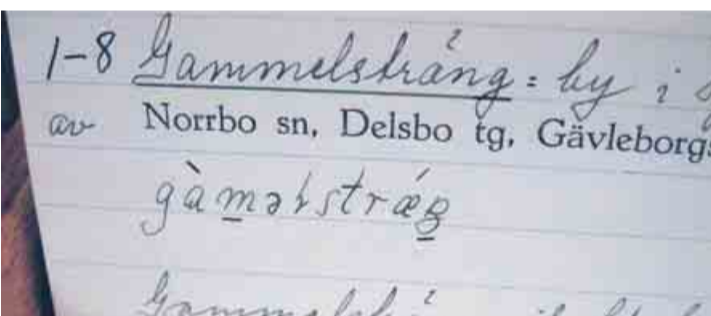 1-8 Gammelsträng: by i
av Norrbo sn, Delsbo tg, Gävleborgs
gàməlstræ´ŋ